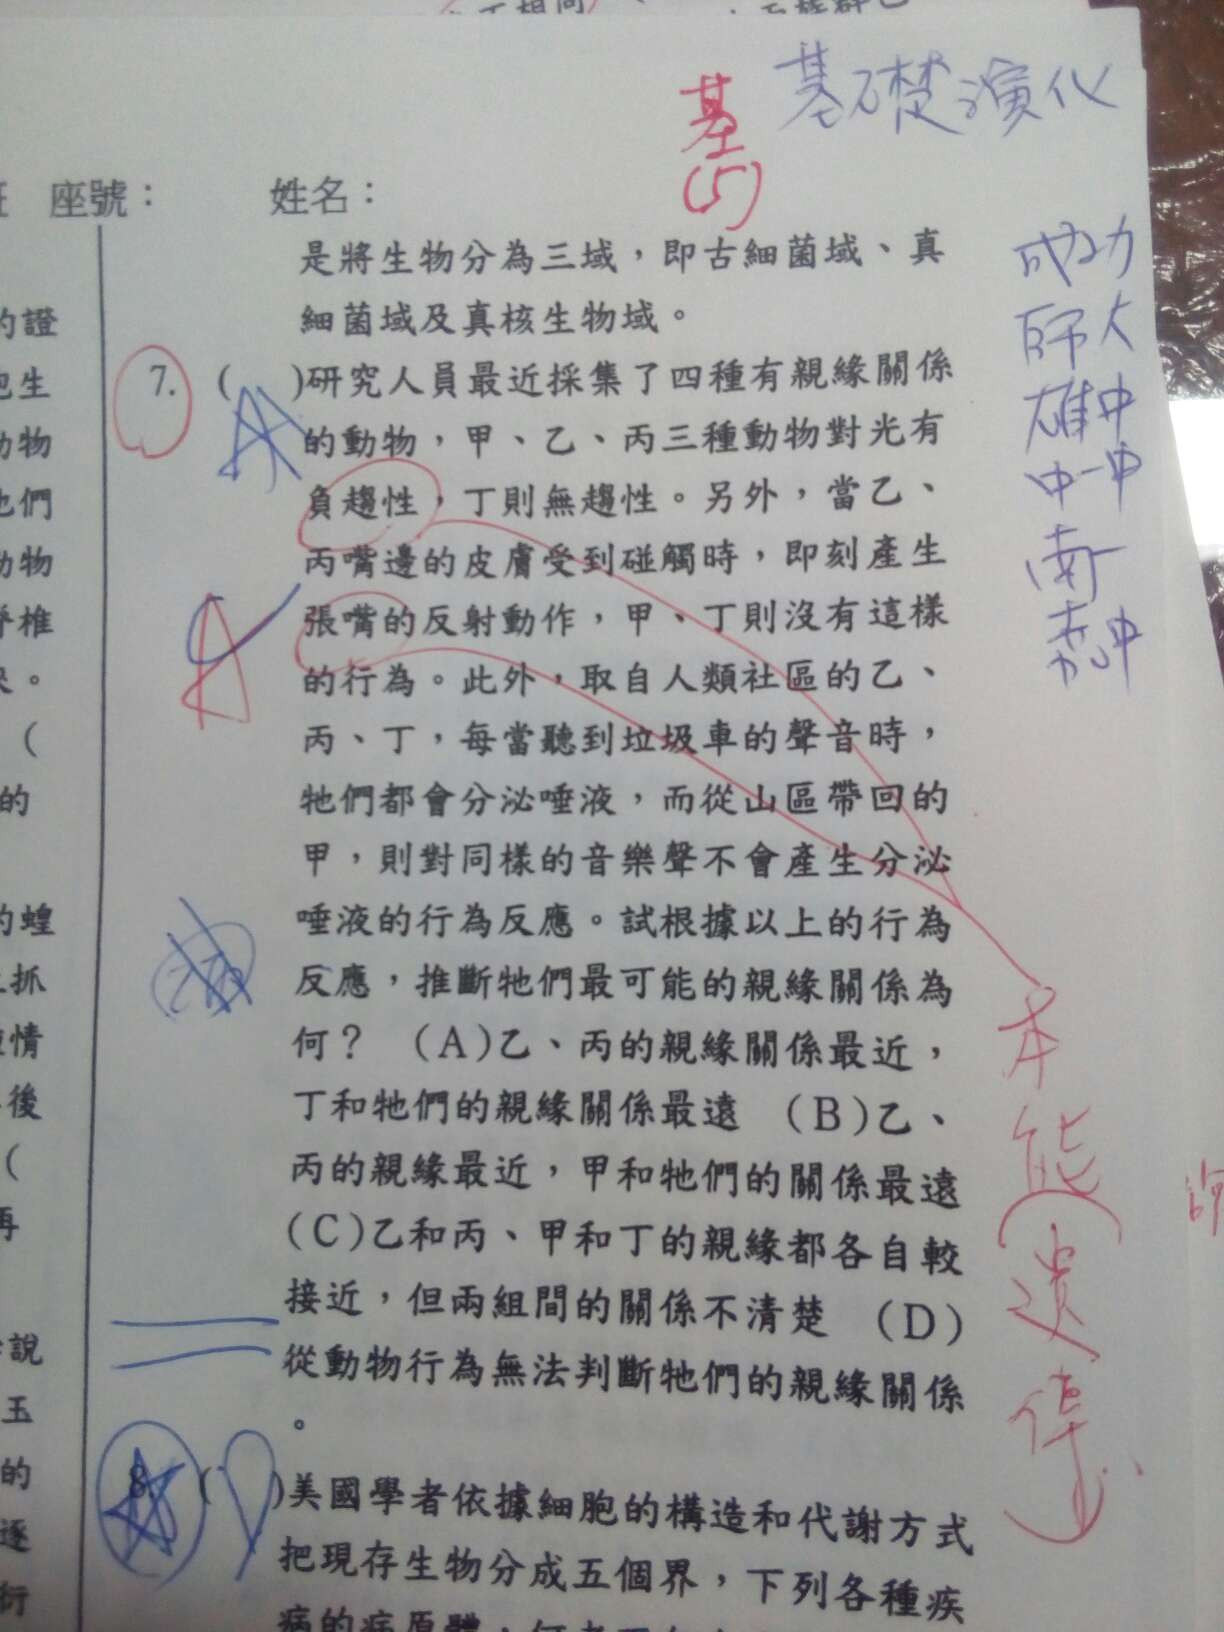 基礎演化
基
(5)
座號：　姓名：
成功
師大
雄中
中一中
南一
嘉中
是將生物分為三域，即古細菌域、真
細菌域及真核生物域。
7. ( )研究人員最近採集了四種有親緣關係
的動物，甲、乙、丙三種動物對光有
負趨性，丁則無趨性。另外，當乙、
丙嘴邊的皮膚受到碰觸時，即刻產生
張嘴的反射動作，甲、丁則沒有這樣
的行為。此外，取自人類社區的乙、
丙、丁，每當聽到垃圾車的聲音時，
牠們都會分泌唾液，而從山區帶回的
甲，則對同樣的音樂聲不會產生分泌
唾液的行為反應。試根據以上的行為
反應，推斷牠們最可能的親緣關係為
何？ (A)乙、丙的親緣關係最近，
丁和牠們的親緣關係最遠 (B)乙、
丙的親緣最近，甲和牠們的關係最遠
(C)乙和丙、甲和丁的親緣都各自較
接近，但兩組間的關係不清楚 (D)
從動物行為無法判斷牠們的親緣關係
。
8. ( )美國學者依據細胞的構造和代謝方式
把現存生物分成五個界，下列各種疾
本能
(遺傳)
的證
胞生
動物
他們
動物
脊椎
。
(
的
的蝗
抓
情
後
(
再
說
玉
的
逐
衍